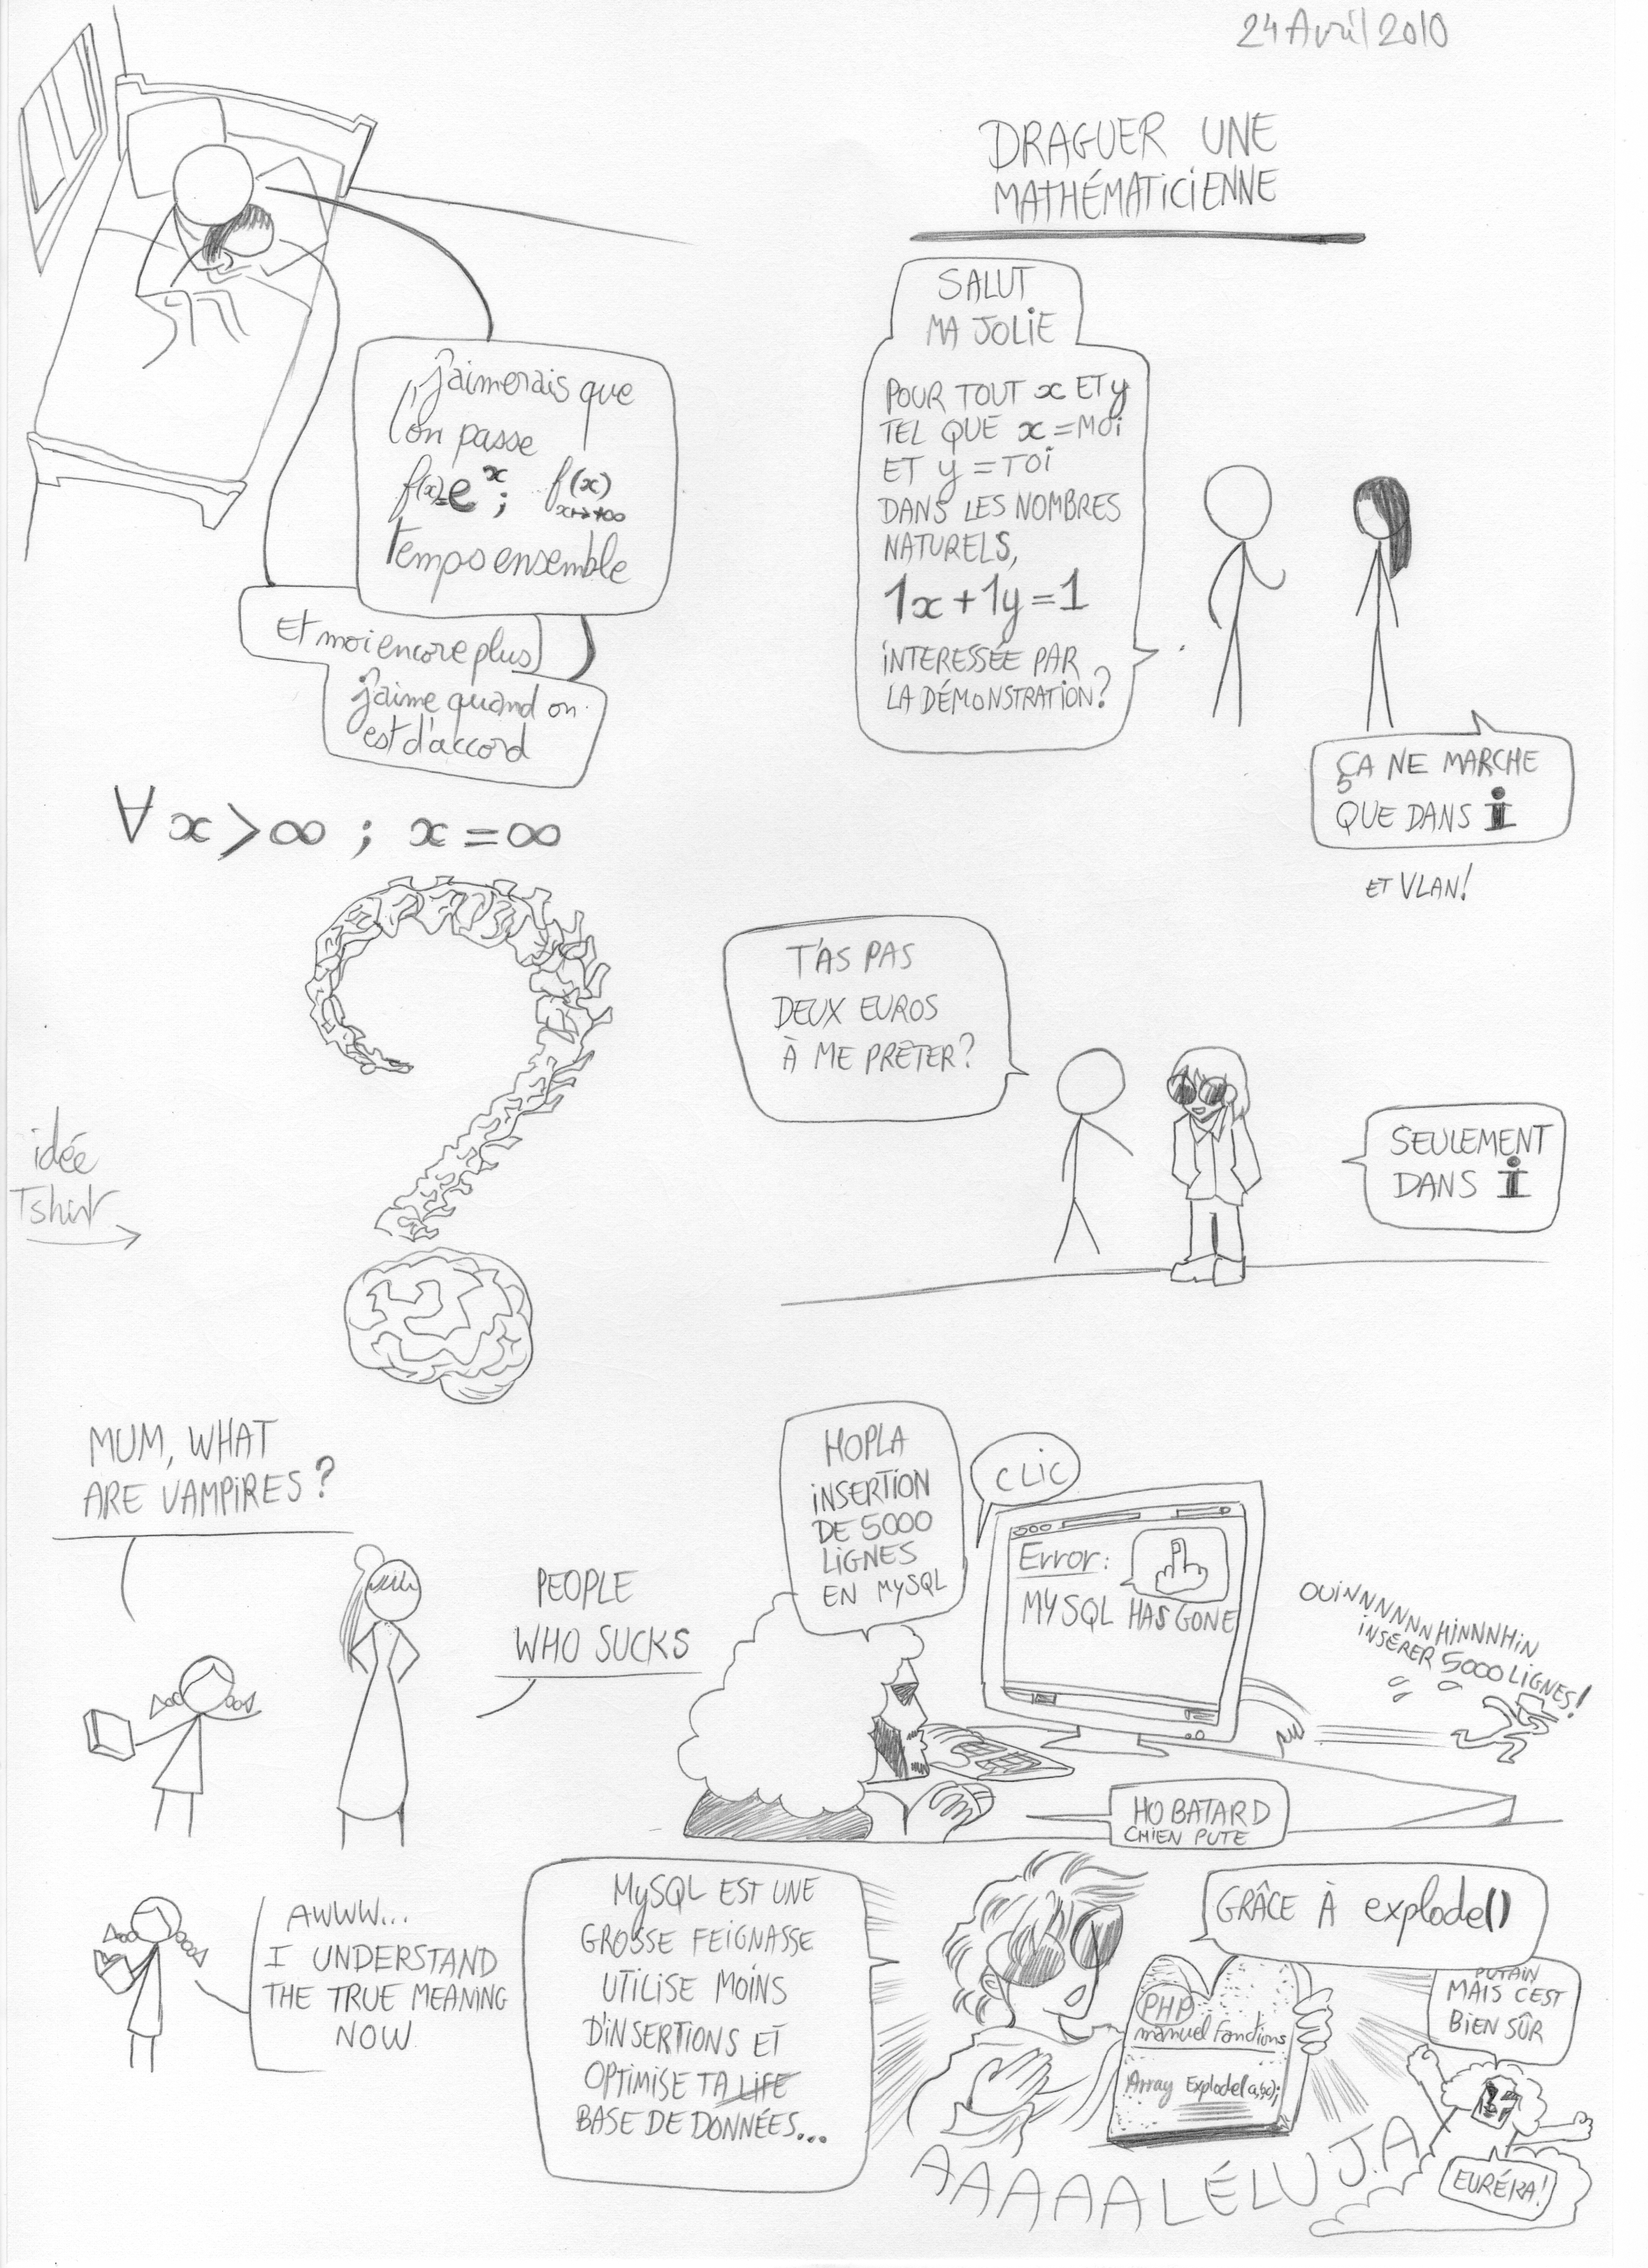 24 Avril 2010
j'aimerais que
l'on passe
f(x)=e^x; f(x)
x↦+∞
temps ensemble
Et moi encore plus
j'aime quand on
est d'accord
∀ x > ∞ ; x = ∞
DRAGUER UNE
MATHÉMATICIENNE
SALUT
MA JOLIE
POUR TOUT x ET y
TEL QUE x = MOI
ET y = TOI
DANS LES NOMBRES
NATURELS,
1x + 1y = 1
INTERESSÉE PAR
LA DÉMONSTRATION?
ÇA NE MARCHE
QUE DANS i
ET VLAN!
idée
Tshirt
T'AS PAS
DEUX EUROS
À ME PRÊTER?
SEULEMENT
DANS i
MUM, WHAT
ARE VAMPIRES?
PEOPLE
WHO SUCKS
AWWW...
I UNDERSTAND
THE TRUE MEANING
NOW
HOPLA
INSERTION
DE 5000
LIGNES
EN MySQL
CLIC
Error:
MYSQL HAS GONE
OUiNNNNNNHiNNNHiN
INSERER 5000 LIGNES!
HO BATARD
CHIEN PUTE
MySQL EST UNE
GROSSE FEIGNASSE
UTILISE MOINS
D'INSERTIONS ET
OPTIMISE TA LIFE
BASE DE DONNÉES...
GRÂCE À explode()
PHP
manuel Fonctions
Array Explode(a,b,c);
PUTAIN
MAIS C'EST
BIEN SÛR
EURÉKA!
AAAAALÉLUJA